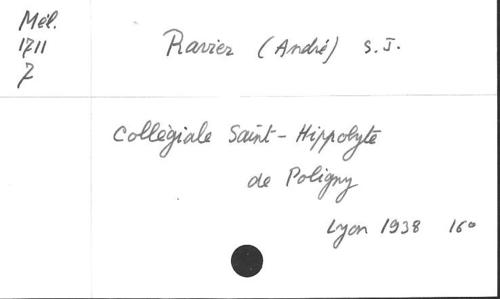 Mél.
1711
7
Ravier (André) S.J.
Collègiale Saint-Hippolyte
de Poligny
Lyon 1938 16°